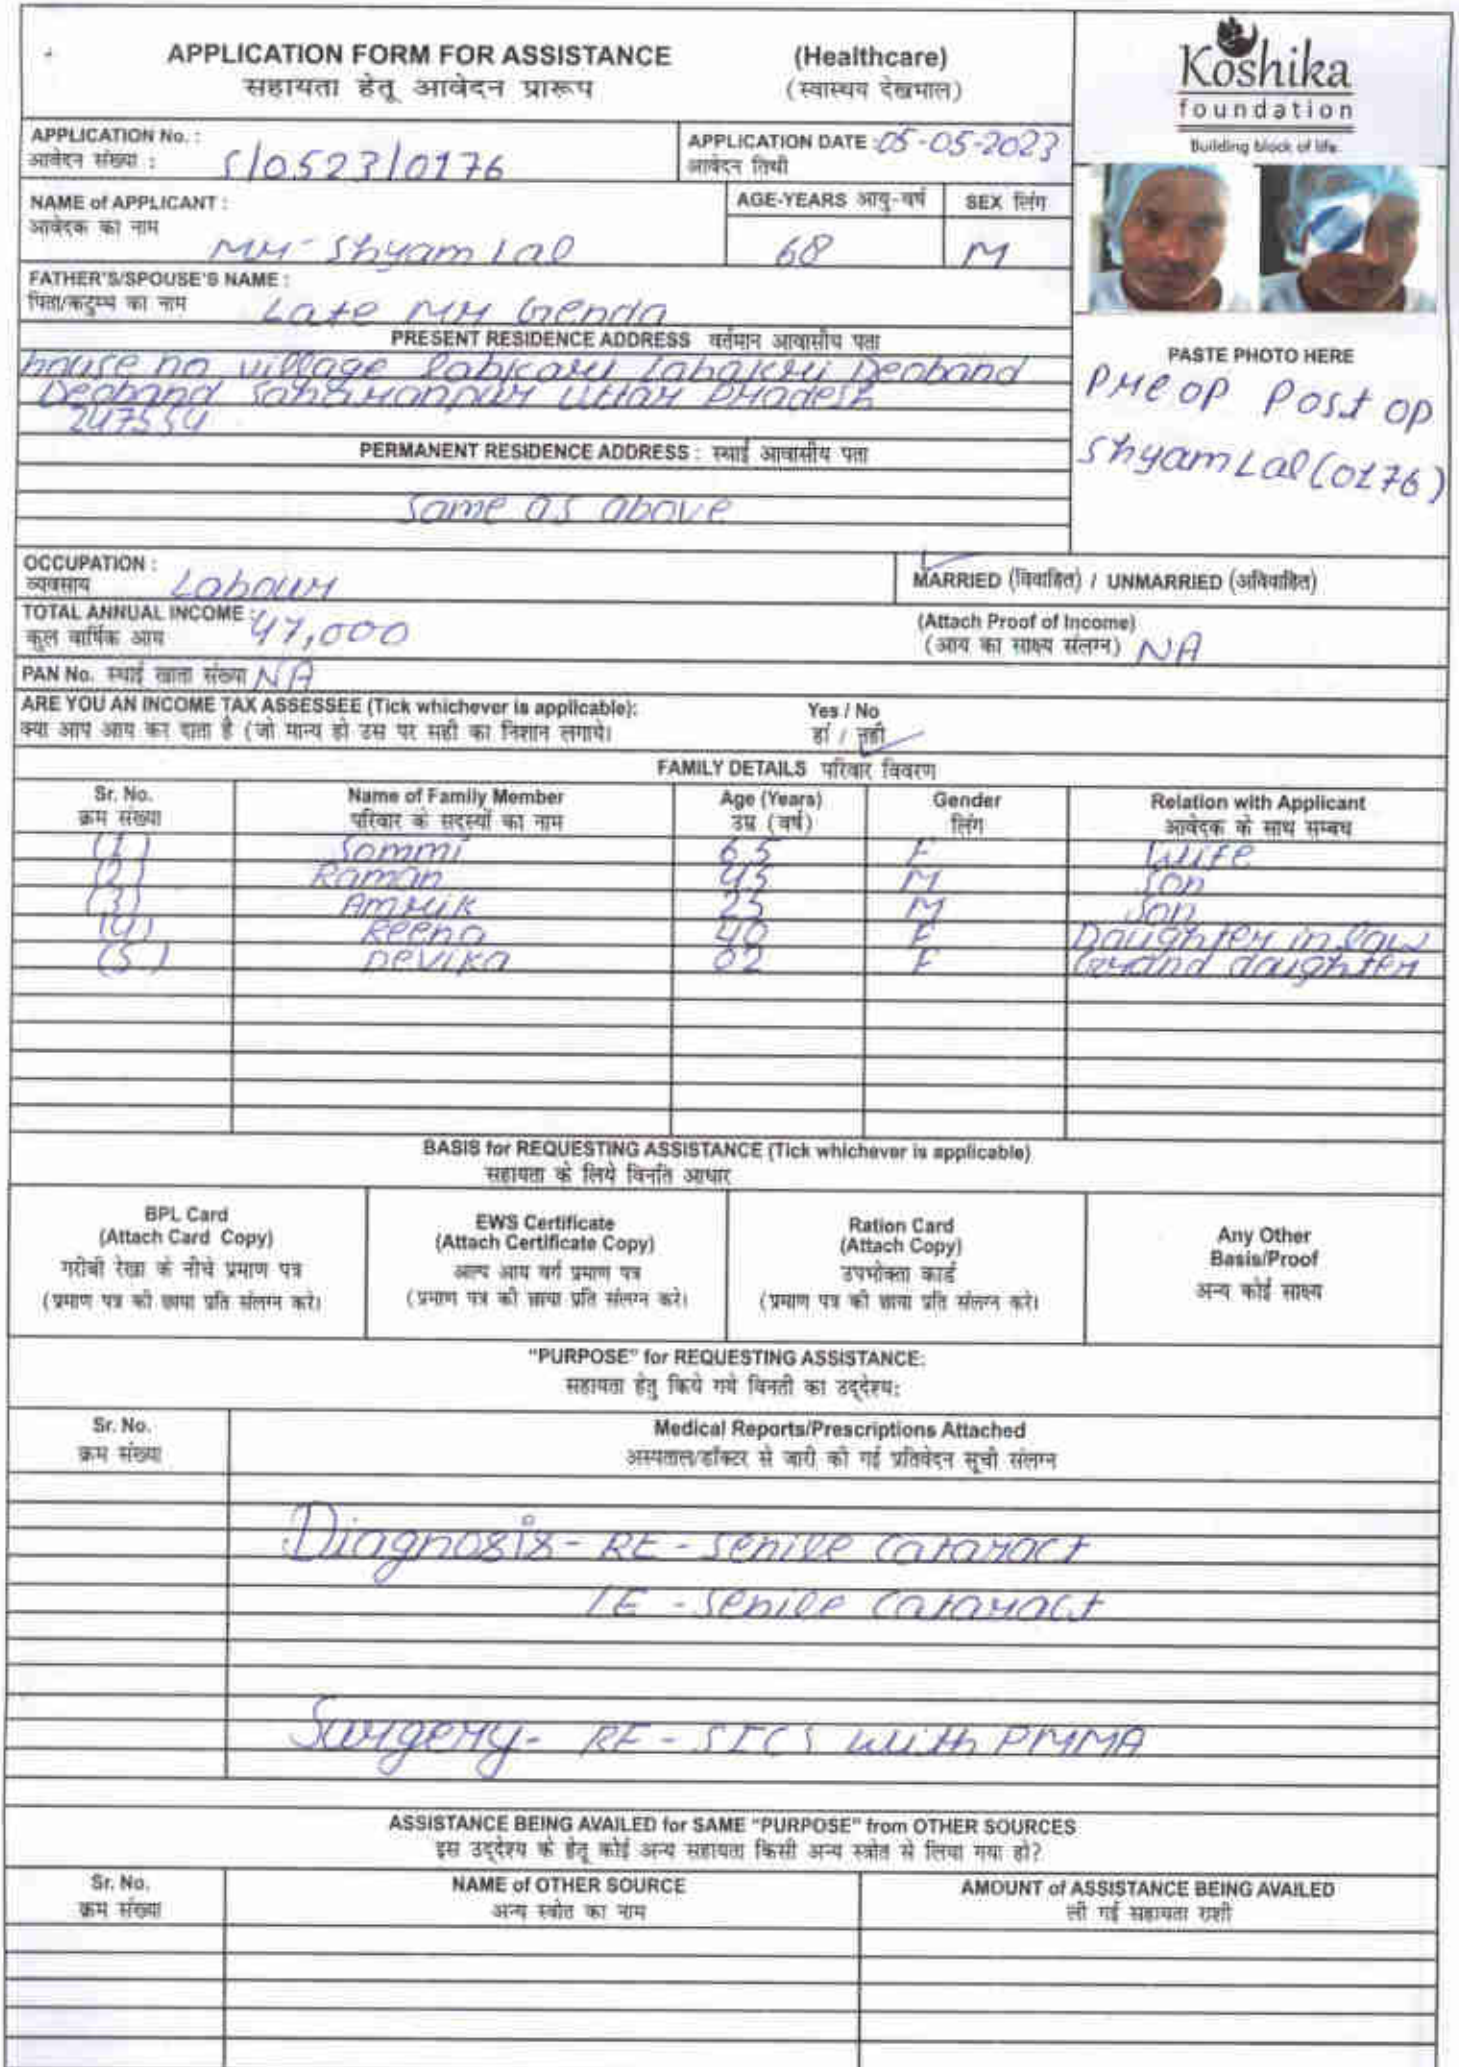 APPLICATION FORM FOR ASSISTANCE (Healthcare)
सहायता हेतू आवेदन प्रारूप (स्वास्थय देखभाल)
Koshika
foundation
Building block of life
APPLICATION No. :
आवेदन संख्या : S/0523/0176
APPLICATION DATE 05-05-2023
आवेदन तिथी
NAME of APPLICANT :
आवेदक का नाम
Mr- Shyam Lal
AGE-YEARS आयु-वर्ष SEX लिंग
68 M
FATHER'S/SPOUSE'S NAME :
पिता/कटुम्ब का नाम Late Mr Genda
PRESENT RESIDENCE ADDRESS वर्तमान आवासीय पता
house no village Labkari Labakri Deoband
Deoband Saharanpur Uttar Pradesh
247554
PASTE PHOTO HERE
Pre op Post op
Shyam Lal (0176)
PERMANENT RESIDENCE ADDRESS : स्थाई आवासीय पता
Same as above
OCCUPATION :
व्यवसाय Labour
MARRIED (विवाहित) / UNMARRIED (अविवाहित)
TOTAL ANNUAL INCOME :
कुल वार्षिक आय 47,000
(Attach Proof of Income)
(आय का साक्ष्य संलग्न) NA
PAN No. स्थाई खाता संख्या NA
ARE YOU AN INCOME TAX ASSESSEE (Tick whichever is applicable): Yes / No
क्या आप आय कर दाता है (जो मान्य हो उस पर सही का निशान लगाये। हां / नही
FAMILY DETAILS परिवार विवरण
Sr. No. Name of Family Member Age (Years) Gender Relation with Applicant
क्रम संख्या परिवार के सदस्यों का नाम उम्र (वर्ष) लिंग आवेदक के साथ सम्बध
(1) Sommi 65 F Wife
(2) Raman 45 M Son
(3) Amrik 25 M Son
(4) Reena 40 F Daughter in law
(5) Devika 02 F Grand daughter
BASIS for REQUESTING ASSISTANCE (Tick whichever is applicable)
सहायता के लिये विनति आधार
BPL Card
(Attach Card Copy)
गरीबी रेखा के नीचे प्रमाण पत्र
(प्रमाण पत्र की छाया प्रति संलग्न करे।
EWS Certificate
(Attach Certificate Copy)
अल्प आय वर्ग प्रमाण पत्र
(प्रमाण पत्र की छाया प्रति संलग्न करे।
Ration Card
(Attach Copy)
उपभोक्ता कार्ड
(प्रमाण पत्र की छाया प्रति संलग्न करे।
Any Other
Basis/Proof
अन्य कोई साक्ष्य
"PURPOSE" for REQUESTING ASSISTANCE:
सहायता हेतु किये गये विनती का उद्देश्य:
Sr. No. Medical Reports/Prescriptions Attached
क्रम संख्या अस्पताल/डॉक्टर से जारी की गई प्रतिवेदन सूची संलग्न
Diagnosis - RE - Senile Cataract
LE - Senile Cataract
Surgery - RE - SICS with PMMA
ASSISTANCE BEING AVAILED for SAME "PURPOSE" from OTHER SOURCES
इस उद्देश्य के हेतू कोई अन्य सहायता किसी अन्य स्त्रोत से लिया गया हो?
Sr. No. NAME of OTHER SOURCE AMOUNT of ASSISTANCE BEING AVAILED
क्रम संख्या अन्य स्त्रोत का नाम ली गई सहायता राशी